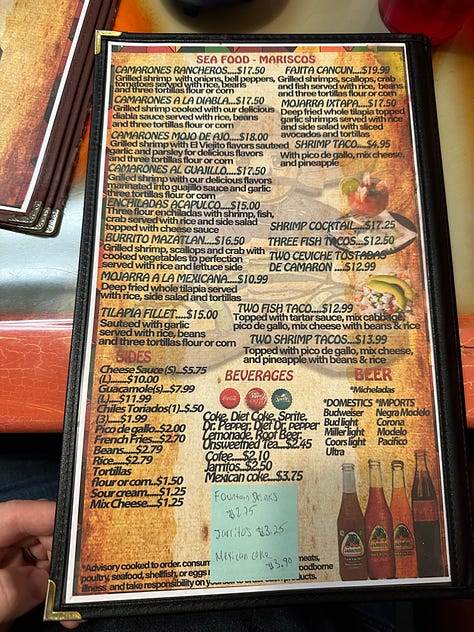 SEA FOOD - MARISCOS
CAMARONES RANCHEROS....$17.50
Grilled shrimp with onions, bell peppers,
tomatoes served with rice, beans
and three tortillas flour or corn
CAMARONES A LA DIABLA....$17.50
Grilled shrimp cooked with our delicious
diabla sauce served with rice, beans
and three tortillas flour or corn
CAMARONES MOJO DE AJO....$18.00
Grilled shrimp with El Viejito flavors sauteed
garlic and parsley for delicious flavors
and three tortillas flour or corn
CAMARONES AL GUAJILLO....$17.50
Grilled shrimp with our delicious flavors
marinated into guajillo sauce and garlic
three tortillas flour or corn
ENCHILADAS ACAPULCO....$15.00
Three flour enchiladas with shrimp, fish,
crab served with rice and side salad
topped with cheese sauce
BURRITO MAZATLAN....$16.50
Grilled shrimp, scallops and crab with
cooked vegetables to perfection
served with rice and lettuce side
MOJARRA A LA MEXICANA....$10.99
Deep fried whole tilapia served
with rice, side salad and tortillas
TILAPIA FILLET....$15.00
Sauteed with garlic
served with rice, beans
and three tortillas flour or corn
FAJITA CANCUN....$19.99
Grilled shrimps, scallops, crab
and fish served with rice, beans
and three tortillas flour or corn
MOJARRA IXTAPA....$17.50
Deep fried whole tilapia topped
garlic shrimps served with rice
and side salad with sliced
avocados and tortillas
SHRIMP TACO....$4.95
With pico de gallo, mix cheese,
and pineapple
SHRIMP COCKTAIL....$17.25
THREE FISH TACOS....$12.50
TWO CEVICHE TOSTADAS
DE CAMARON ....$12.99
TWO FISH TACO....$12.99
Topped with tartar sauce, mix cabbage,
pico de gallo, mix cheese with beans & rice
TWO SHRIMP TACOS....$13.99
Topped with pico de gallo, mix cheese,
and pineapple with beans & rice
SIDES
Cheese Sauce (S)....$5.75
(L)........$10.00
Guacamole(S)....$7.99
(L)....$11.99
Chiles Toriados(1)..$.50
(3)....$1.99
Pico de gallo..$2.00
French Fries..$2.70
Beans....$2.79
Rice....$2.79
Tortillas
flour or corn..$1.50
Sour cream....$1.25
Mix Cheese....$1.25
BEVERAGES
Coke, Diet Coke, Sprite,
Dr. Pepper, Diet Dr. pepper
Lemonade, Root Beer,
Unsweetned Tea....$2.45
Cofee....$2.10
Jarritos...$2.50
Mexican coke....$3.75
BEER
*Micheladas
*DOMESTICS
Budweiser
Bud light
Miller light
Coors light
Ultra
*IMPORTS
Negra Modelo
Corona
Modelo
Pacifico
Fountain drinks
$2.75
Jarritos $3.25
Mexican coke
$3.90
*Advisory cooked to order. consum meats,
poultry, seafood, shellfish, or eggs foodborne
illness and take responsibility on yourself to products.